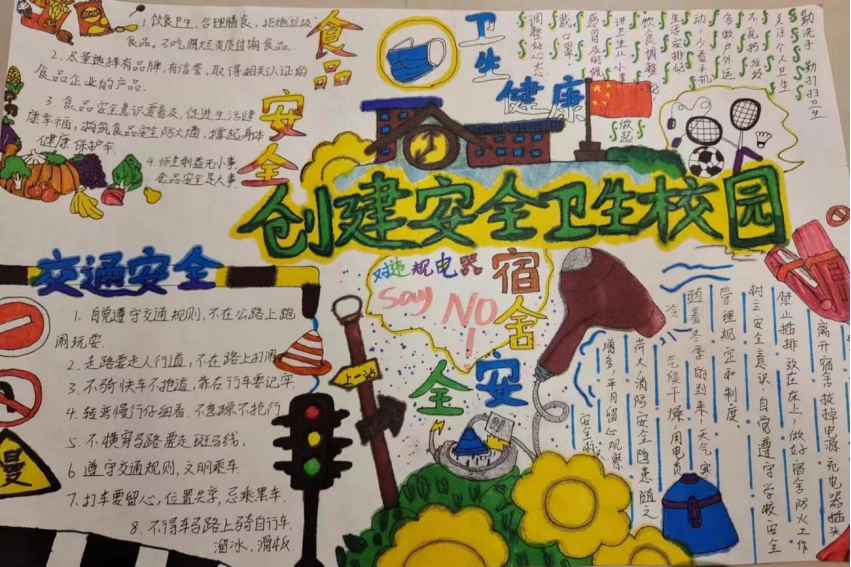 食品安全
1.饮食卫生,合理膳食,拒绝垃圾
食品,不吃腐烂变质过期食品.
2.尽量选择有品牌,有信誉,取得相关认证的
食品企业的产品.
3.食品安全意识要普及,促进生活健
康幸福,构筑食品安全防火墙,撑起身体
健康保护伞.
4.师生利益无小事,
食品安全是大事.
卫生健康
勤洗手 勤打扫卫生
关注个人卫生
不乱扔垃圾
多做户外运
动,少看手机
生活安排好
饮食调整好
讲卫生从小事
做起
感冒及时做
戴口罩
调整好心态
创建安全卫生校园
交通安全
1.自觉遵守交通规则,不在公路上跑
闹玩耍.
2.走路要走人行道,不在路上打闹.
3.不骑快车不抢道,靠右行车要记牢
4.转弯慢行仔细看.不急躁不抢行
5.不横穿马路要走斑马线,
6.遵守交通规则,文明乘车.
7.打车要留心,位置共享,忌乘黑车.
8.不得车马路上骑自行车.
溜冰,滑板.
慢
上一站
对违规电器
Say NO!
宿舍安全
离开宿舍拔掉电源充电器插头
禁止插排放在床上,做好宿舍防火工作
树立安全意识,自觉遵守学校安全
管理规定和制度
随着冬季的到来,天气寒
冷,气候干燥,用电负
荷大,消防安全隐患随之
增多,平月留心观察